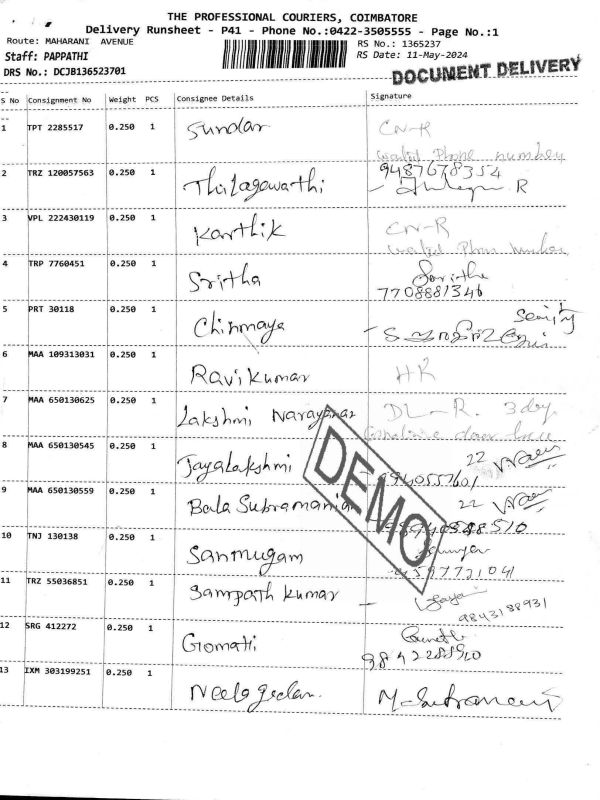 THE PROFESSIONAL COURIERS, COIMBATORE
Delivery Runsheet - P41 - Phone No.:0422-3505555 - Page No.:1
Route: MAHARANI AVENUE
RS No.: 1365237
Staff: PAPPATHI
RS Date: 11-May-2024
DRS No.: DCJB136523701
DOCUMENT DELIVERY
S No Consignment No Weight PCS Consignee Details Signature
1 TPT 2285517 0.250 1 Sundar CN-R
Phone number
2 TRZ 120057563 0.250 1 Thilagawathi 9487678354
R
3 VPL 222430119 0.250 1 Karthik CN-R
Phone number
4 TRP 7760451 0.250 1 Sritha
7708881346
5 PRT 30118 0.250 1 Chinmaya
6 MAA 109313031 0.250 1 Ravikumar HR
7 MAA 650130625 0.250 1 Lakshmi Narayanan DL-R. 3 day
door
8 MAA 650130545 0.250 1 Jayalakshmi 22
9 MAA 650130559 0.250 1 Bala Subramanian 22
10 TNJ 130138 0.250 1 Sanmugam
11 TRZ 55036851 0.250 1 Sampath Kumar
9843188931
12 SRG 412272 0.250 1 Gomati
13 IXM 303199251 0.250 1
DEMO